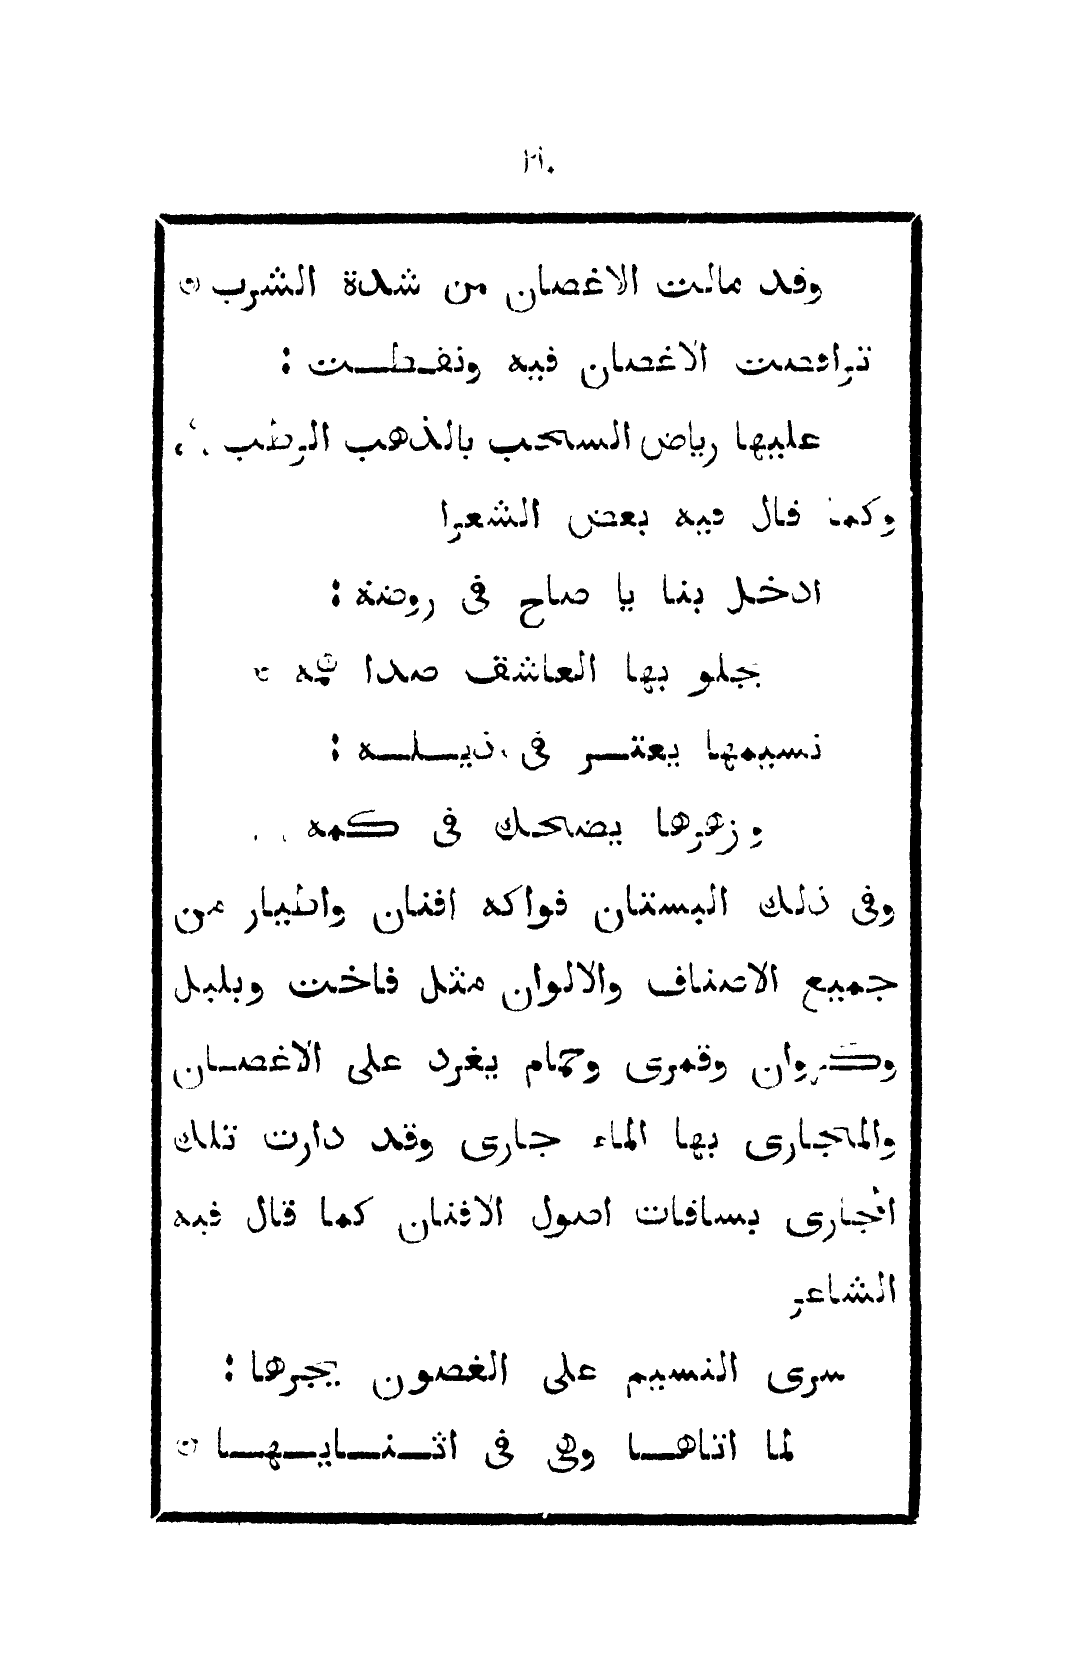 وقد مالت الاغصان من شدة الشرب
تراقصت الاغصان فيه ونقطت :
عليها رياض السحب بالذهب الرطب
وكما قال فيه بعض الشعرا
ادخل بنا يا صاح فى روضة :
يجلو بها العاشق صدا همه
نسيمها يعتر فى ذيله :
وزهرها يضحك فى كمه
وفى ذلك البستان فواكه افنان واطيار من
جميع الاصناف والالوان مثل فاخت وبلبل
وكروان وقمرى وحمام يغرد على الاغصان
والمجارى بها الماء جارى وقد دارت تلك
المجارى بسافات اصول الافنان كما قال فيه
الشاعر
سرى النسيم على الغصون يجرها :
لما اتاها وهى فى اثنايها